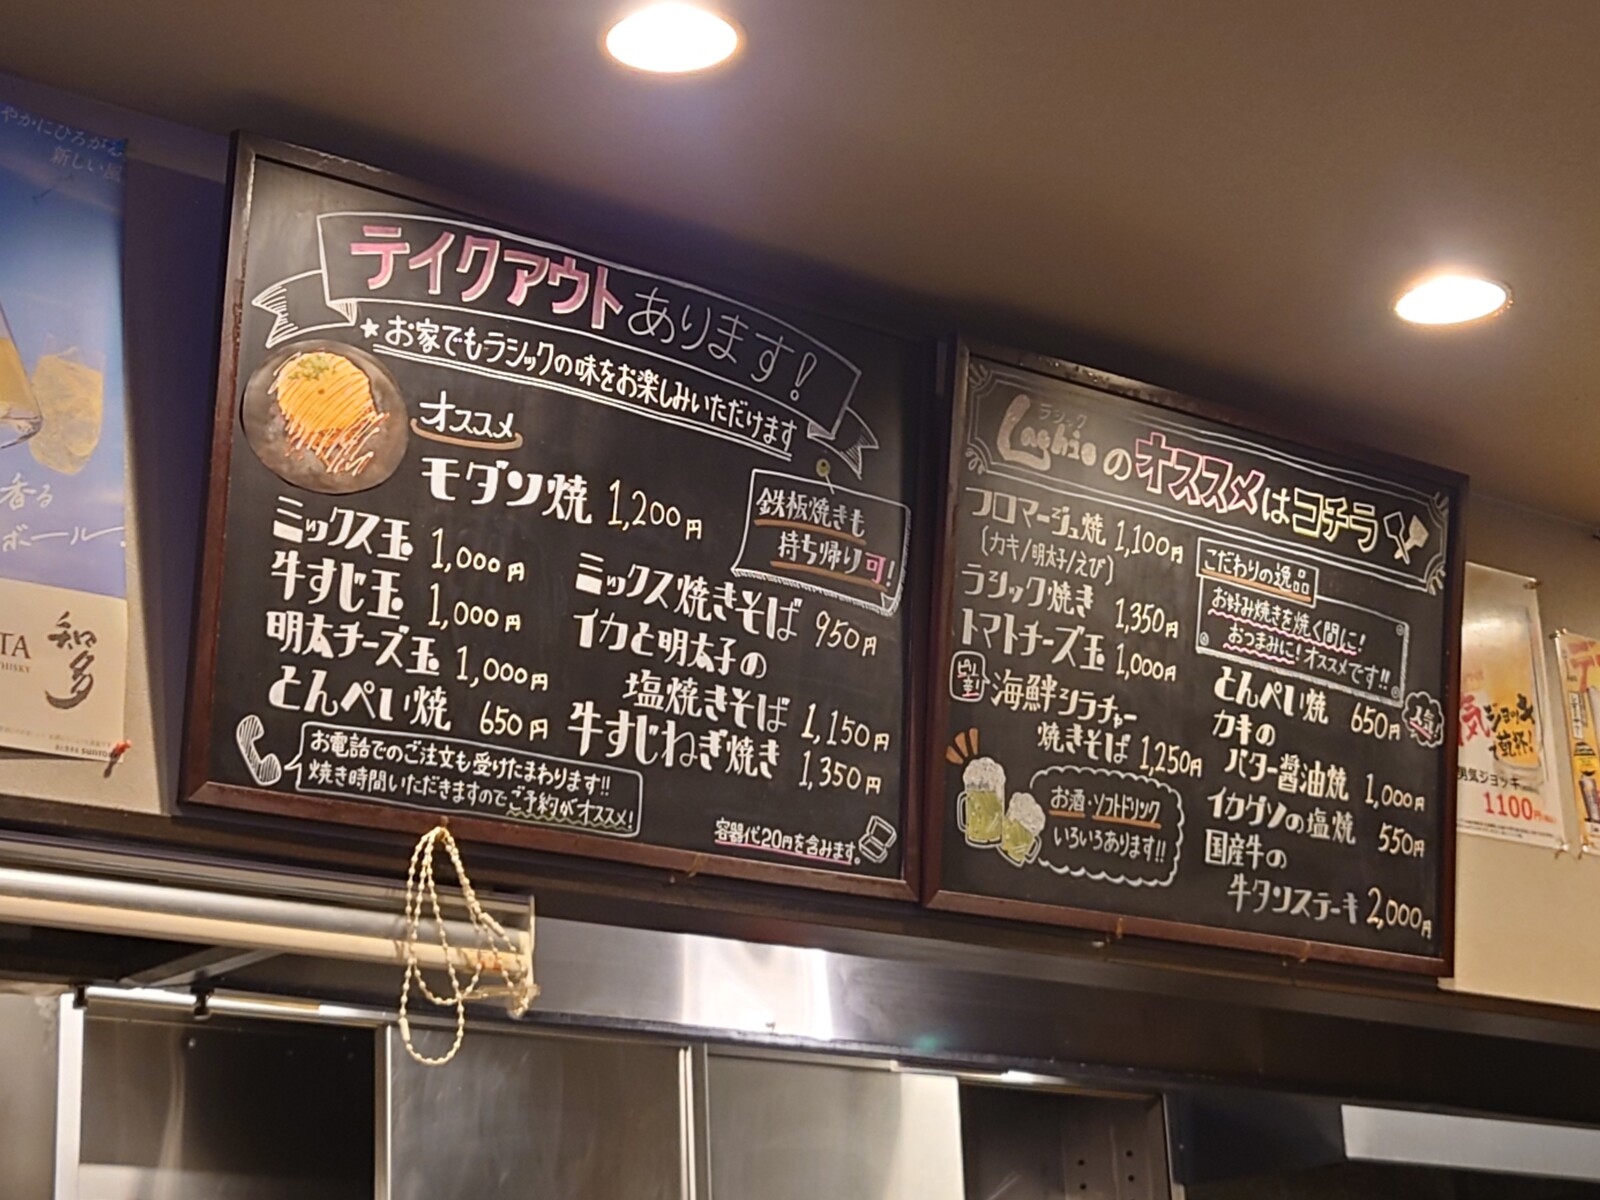 やかにひろがる
新しい風
香る
ボール
TA
HISKY
知多
テイクアウトあります!
★お家でもラシックの味をお楽しみいただけます
オススメ
モダン焼 1,200円
ミックス玉 1,000円
牛すじ玉 1,000円
明太チーズ玉 1,000円
とんぺい焼 650円
鉄板焼きも
持ち帰り可!
ミックス焼きそば 950円
イカと明太子の
塩焼きそば 1,150円
牛すじねぎ焼き 1,350円
お電話でのご注文も受けたまわります!!
焼き時間いただきますのでご予約がオススメ!
容器代20円を含みます。
ラシック
Lashicのオススメはコチラ
フロマージュ焼 1,100円
(カキ/明太子/えび)
ラシック焼き 1,350円
トマトチーズ玉 1,000円
ピリ辛!
海鮮シラチャー
焼きそば 1,250円
お酒・ソフトドリンク
いろいろあります!!
こだわりの逸品
お好み焼きを焼く間に!
おつまみに!オススメです!!
とんぺい焼 650円
人気!
カキの
バター醤油焼 1,000円
イカゲソの塩焼 550円
国産牛の
牛タンステーキ 2,000円
気ジョッキ
男気ジョッキ
1100円